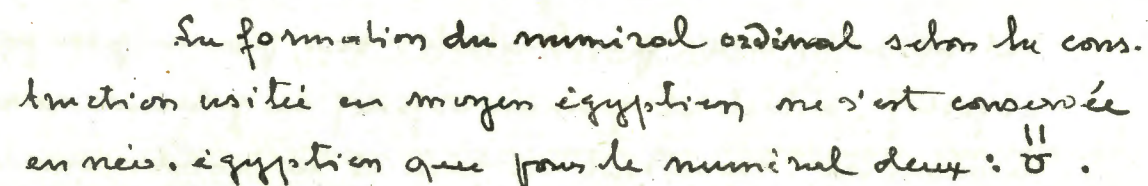 La formation du numéral ordinal selon la cons-
truction usitée en moyen égyptien ne s'est conservée
en néo-égyptien que pour le numéral deux : 𓏮𓏌 .